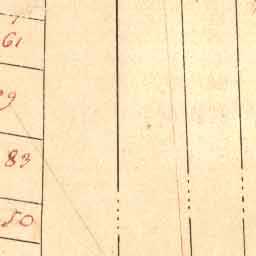 61
29
83
50